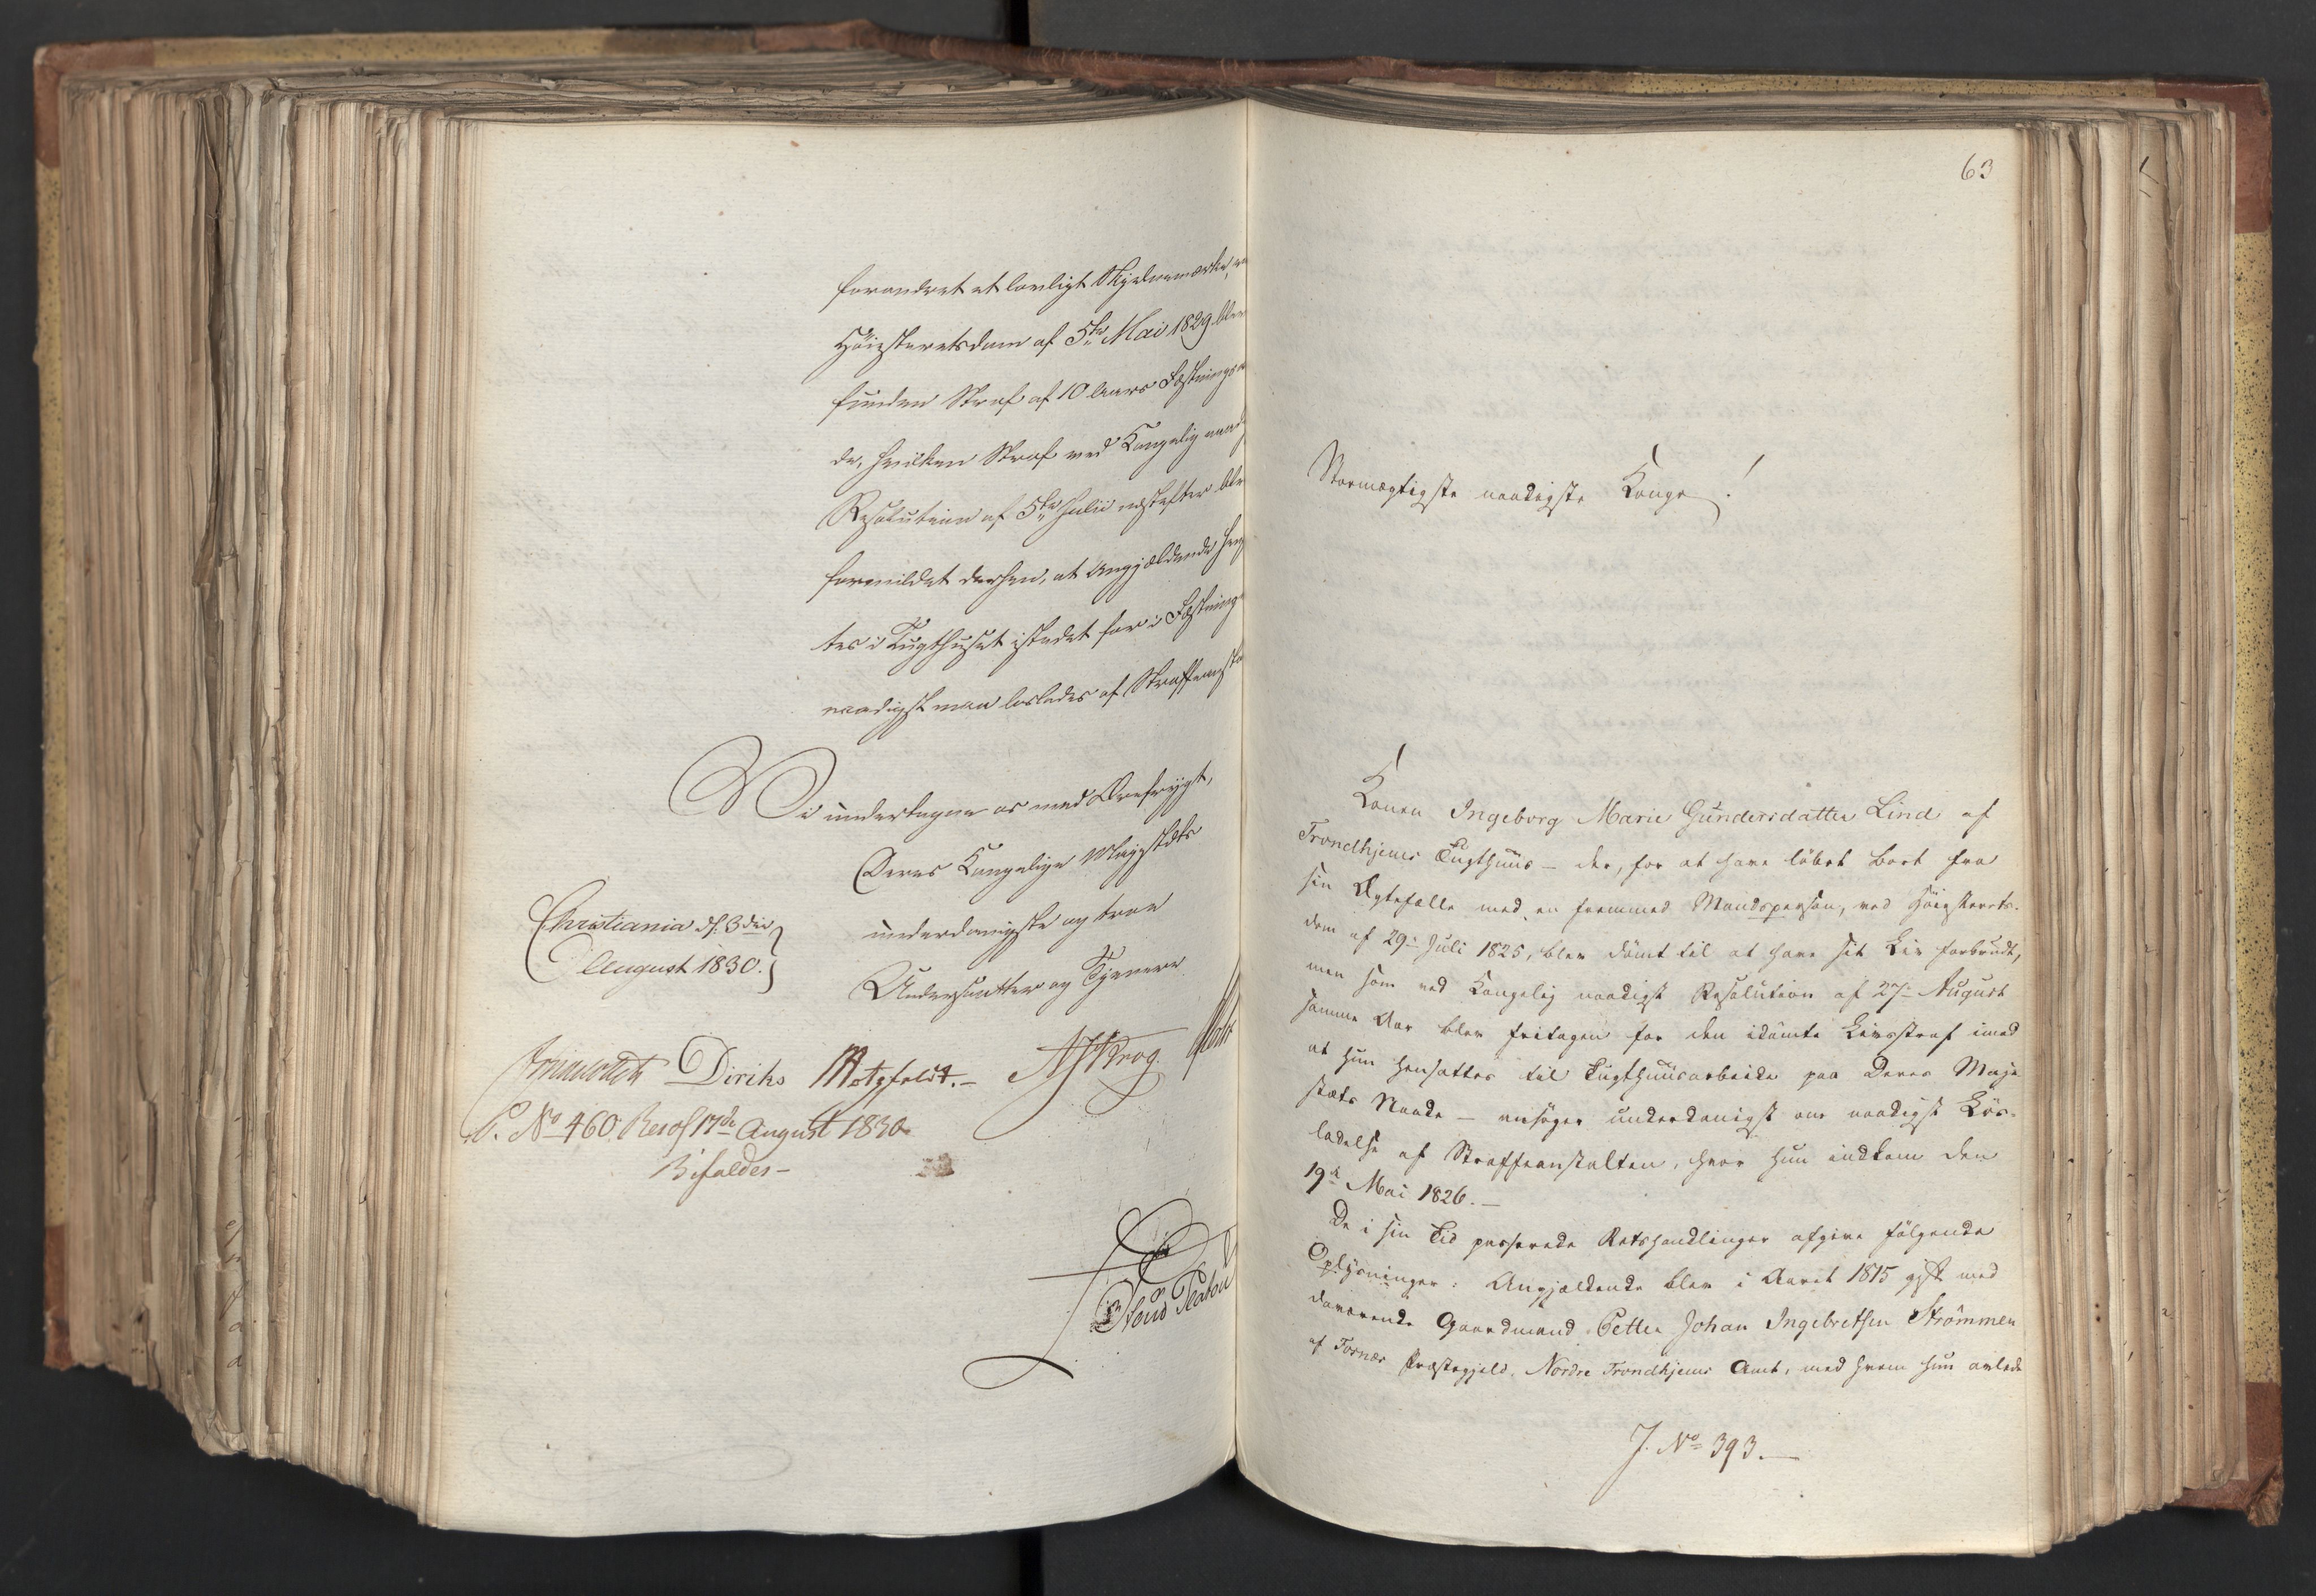 forandret et lovligt Skjelemærke,
Höiesteretsdom af 5te Mai 1829 blev
funden Straf af 10 Aars Fæstnings
de, hvilken Straf ved Kongelig naad
Resolution af 5te Julii næstefter blev
formildet derhen, at Angjældende hen
tes i Tugthuset istedet for i Fæstning
naadigst maa loslades af Straffeanst
Vi undertegne os med Ærefrygt,
Deres Kongelige Majestæts
underdanigste og troe
Undersaatter og Tjenere
Christiania d. 3die
August 1830.
Diriks Motzfeldt. – Krog.
P. No 460. Resol 17de August 1830
Bifaldes –
63
Stormægtigste naadigste Konge!
Konen Ingeborg Marie Gundersdatter Lind af
Trondhjems Tugthuus – der, for at have löbet bort fra
sin Ægtefælle med en fremmed Mandsperson, ved Höiesterets-
dom af 29 Juli 1825, blev dömt til at have sit Liv forbrudt,
men som ved Kongelig naadigst Resolution af 27 August
samme Aar blev fritagen for den idömte Livsstraf imod
at hun hensattes til Tugthuusarbeide paa Deres Maje
stæts Naade – ansöger underdanigst om naadigst Lös-
ladelse af Straffeanstalten, hvor hun indkom den
19de Mai 1826. –
De i sin Tid passerede Retshandlinger afgive fölgende
Oplysninger: Angjældende blev i Aaret 1815 gift med
daværende Gaardmand Petter Johan Ingebretsen Strömmen
af Fosnæs Præstegjeld, Nordre Trondhjems Amt, med hvem hun avlede
J. No 393. –